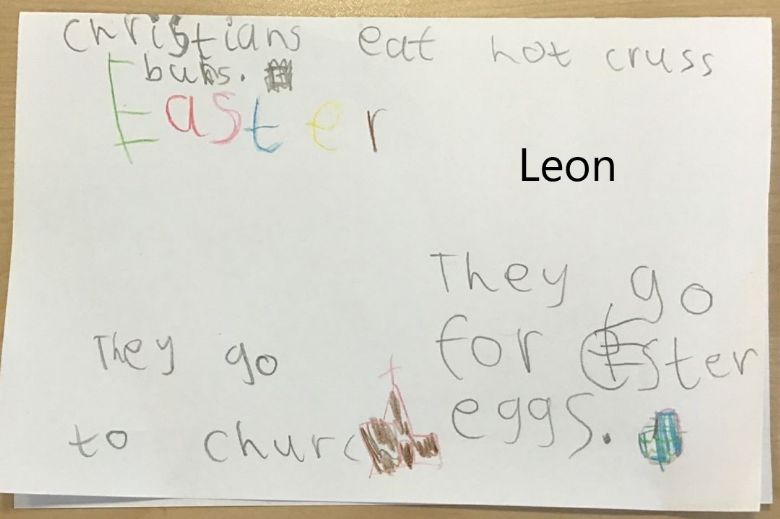 christians eat hot cruss
buns.
Easter
Leon
They go
for Ester
eggs.
They go
to church